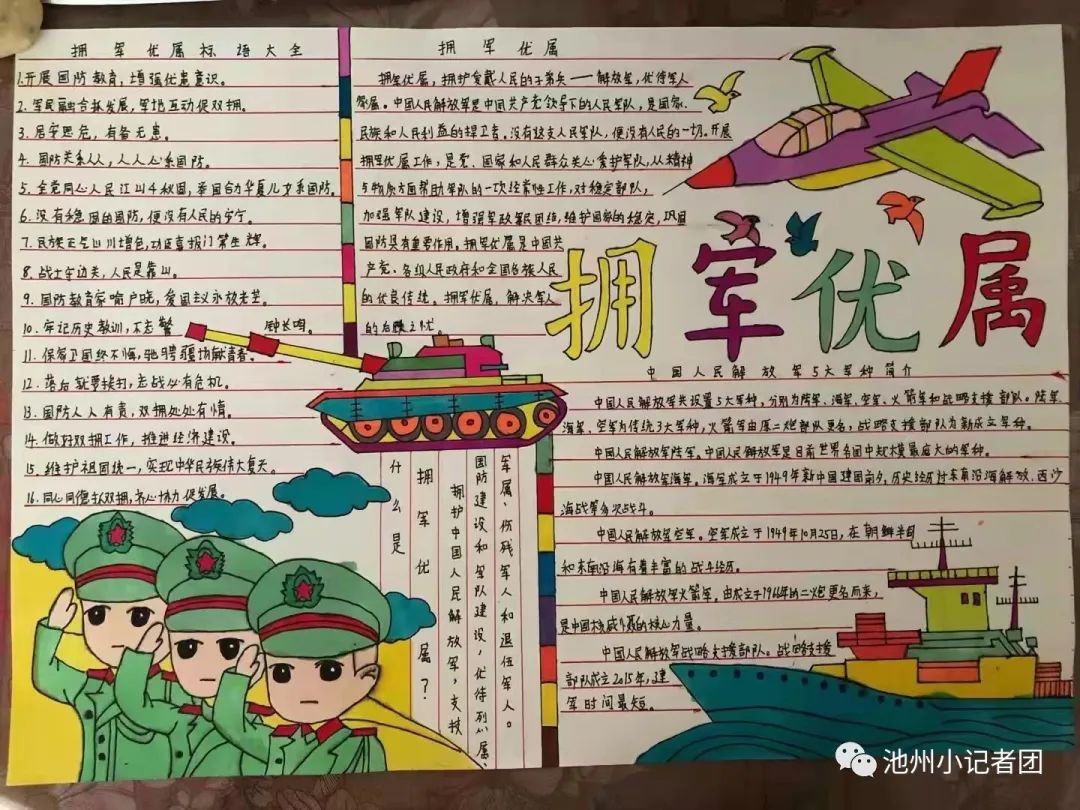 拥军优属标语大全
1.开展国防教育，增强优患意识。
2.军民融合抓发展，军地互动促双拥。
3.居安思危，有备无患。
4.国防关系人人，人人心系国防。
5.全党同心人民江山千秋固，举国合力华夏儿女乘国防。
6.没有稳固的国防，便没有人民的安宁。
7.民族正气山川增色，功臣喜报门第生辉。
8.战士守边关，人民是靠山。
9.国防教育家喻户晓，爱国主义永放光芒。
10.牢记历史教训，不忘警钟长鸣。
11.保家卫国终不悔，驰骋疆场献青春。
12.落后就要挨打，忘战必有危机。
13.国防人人有责，双拥处处有情。
14.做好双拥工作，推进经济建设。
15.维护祖国统一，实现中华民族伟大复兴。
16.同心同德抓双拥，齐心协力促发展。
拥军优属
拥军优属，拥护爱戴人民的子弟兵——解放军，优待军人
家属。中国人民解放军是中国共产党领导下的人民军队，是国家、
民族和人民利益的捍卫者。没有这支人民军队，便没有人民的一切。开展
拥军优属工作，是党、国家和人民群众关心爱护军队，从精神
与物质方面帮助军队的一次经常性工作，对稳定部队，
加强军队建设，增强军政军民团结，维护国家的稳定，巩固
国防具有重要作用。拥军优属是中国共
产党、各级人民政府和全国各族人民
的优良传统。拥军优属，解决军人
的后顾之忧。
拥军优属
中国人民解放军5大军种简介
中国人民解放军共设置5大军种，分别为陆军、海军、空军、火箭军和战略支援部队。陆军、
海军、空军为传统3大军种，火箭军由原二炮部队更名，战略支援部队为新成立军种。
中国人民解放军陆军。中国人民解放军是目前世界各国中规模最庞大的军种。
中国人民解放军海军。海军成立于1949年新中国建国前夕，历史经历过东南沿海解放、西沙
海战等多次战斗。
中国人民解放军空军。空军成立于1949年10月25日，在朝鲜半岛
和东南沿海有着丰富的战斗经历。
中国人民解放军火箭军。由成立于1966年的二炮更名而来，
是中国核威慑的核心力量。
中国人民解放军战略支援部队。战略支援
部队成立2015年，建
军时间最短。
什么是
拥军优属？
拥护中国人民解放军，支援
国防建设和军队建设，优待烈属、
军属、伤残军人和退伍军人。
池州小记者团